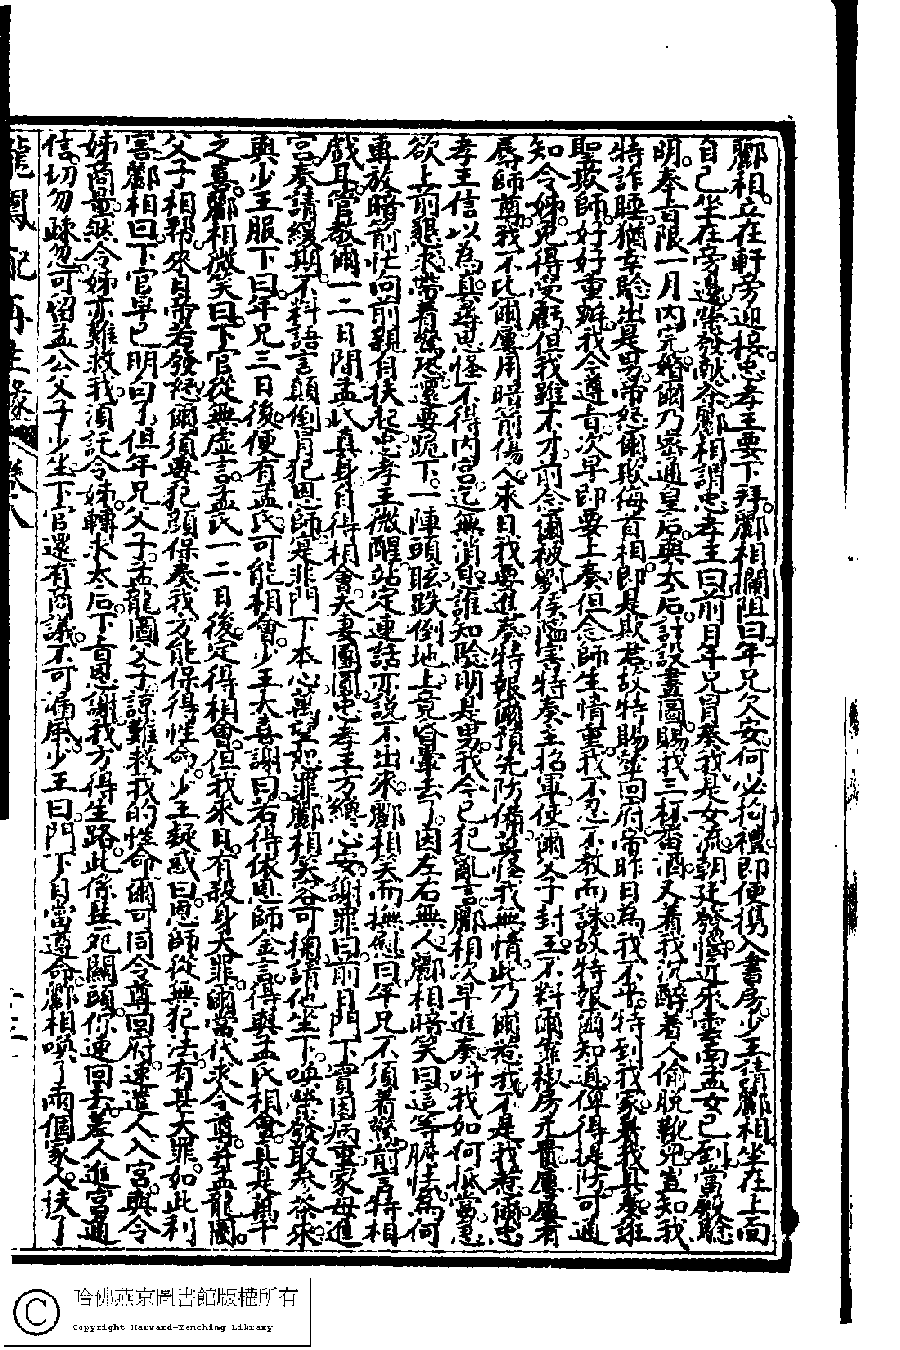 酈相立在軒旁迎接忠孝王要下拜酈相攔阻曰年兄欠安何必拘禮即便携入書房少王請酈相坐在上面
自己坐在旁邊榮發献茶酈相謂忠孝王曰前日年兄冒奏我是女流朝廷發怒近來雲南孟女已到當殿騐
明奉旨限一月內完婚爾乃密通皇后與太后計設畫圖賜我三杯香酒又着我沉醉着人偷脫靴兒豈知我
特詐睡猶幸騐出是男帝怒爾戲侮首相即是欺君故特賜坐回府帝昨日為我不平特到我家着我具奏誑
聖欺師好好重辦我今遵旨次早即要上奏但念師生情重我不忍不教而誅故特報爾知道俾得提防可通
知令姊免得受虧但我雖不才前念爾被劉侯陷害特奏主招軍使爾父子封王不料爾靠椒房元貴屢屢着
辱師尊我不比爾屢用暗箭傷人來日我要進奏特報爾預先防備莫怪我無情此乃爾惹我不是我惹爾忠
孝王信以為真尋思怪不得內宮迄無消息誰知騐明是男我今已犯亂言酈相次早進奏叫我如何抵當急
欲上前懇求帶着驚恐還要跪下一陣頭眩跌倒地上竟昏暈去了因左右無人酈相暗笑曰這等胆怯為何
專放暗箭忙向前親自扶起忠孝王微醒站定連話亦說不出來酈相笑而撫慰曰年兄不須着驚前言特相
戲耳管教爾一二日間孟氏真身自得相會夫妻團圓忠孝王方纔心安謝罪曰前日門下實因病重家母進
宮奏請緩期不料語言顛倒冐犯恩師寔非門下本心萬望恕罪酈相笑容可掬請他坐下喚榮發取参茶來
與少王服下曰年兄三日後便有孟氏可能相會少王大喜謝曰若得依恩師金言得與孟氏相會真是萬千
之喜酈相微笑曰下官從無虛言孟氏一二日後定得相會但我來日有殺身大罪爾當代求令尊并孟龍圖
父子相帮來日帝若發怒爾須要犯顏保奏我方能保得性命少王疑惑曰恩師從無犯法有甚大罪如此利
害酈相曰下官早已明白了但年兄父子孟龍圖父子諒難救我的性命爾可同令尊回府速遣人入宮與令
姊商量然令姊亦難救我須託令姊轉求太后下旨恩謝我方得生路此係生死關頭你速回去差人進宮通
信切勿疎忽可留孟公父子少坐下官還有商議不可漏風少王曰門下自當遵命酈相喚了兩個家人扶了
龍鳳配再生緣 卷八 十三
哈佛燕京圖書館版權所有
Copyright Harvard-Yenching Library